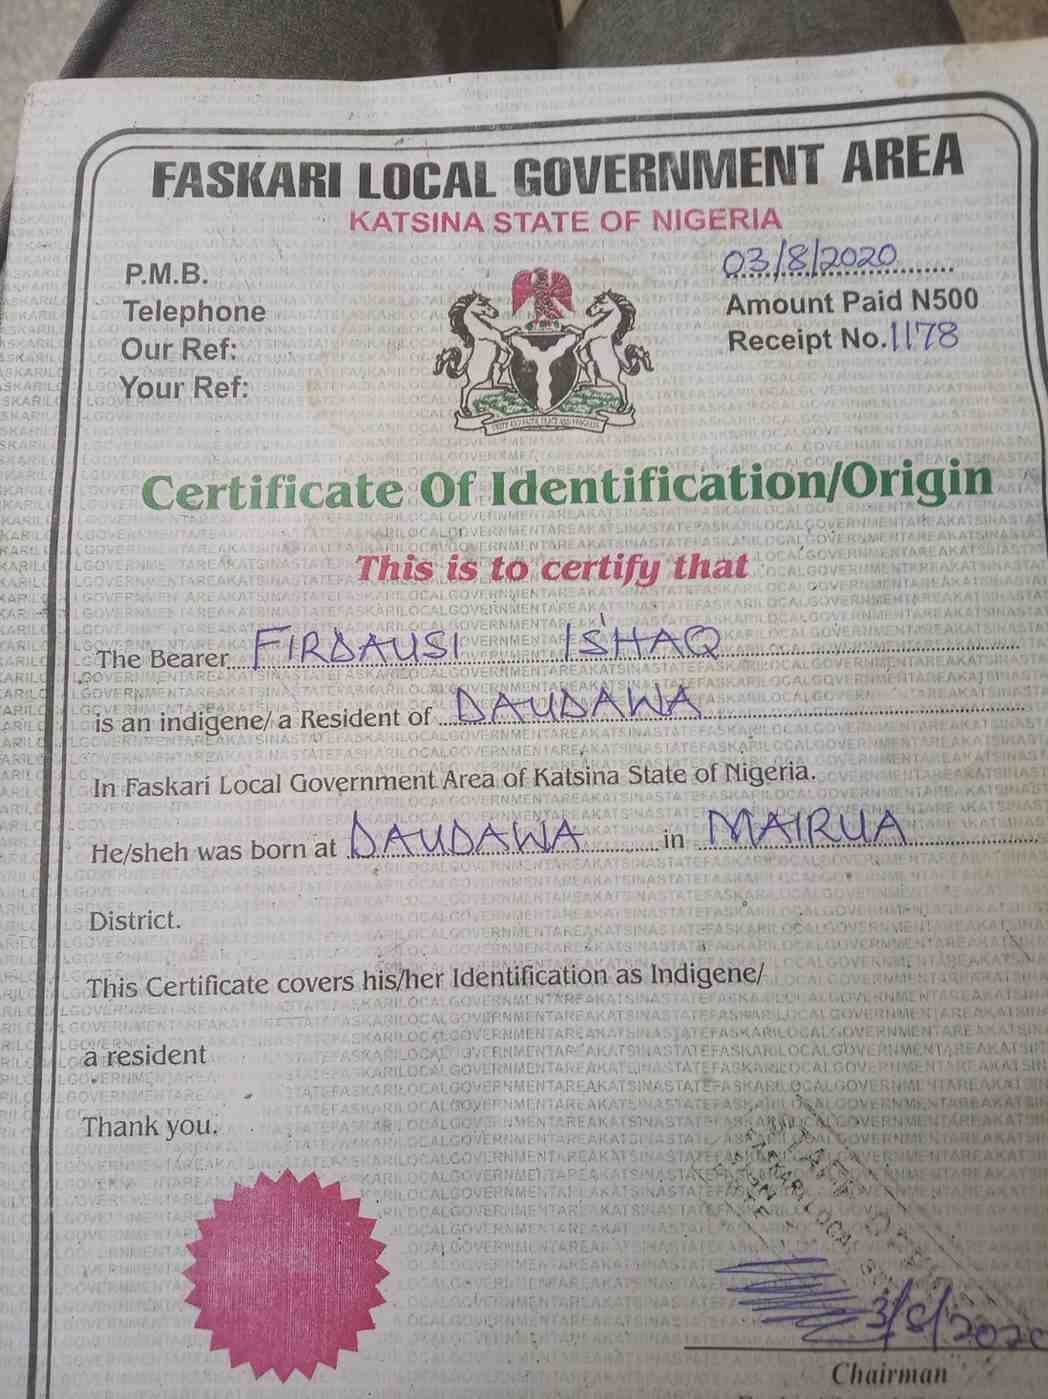 FASKARI LOCAL GOVERNMENT AREA
KATSINA STATE OF NIGERIA
03/8/2020
P.M.B.
Amount Paid N500
Telephone
Receipt No. 1178
Our Ref:
Your Ref:
Certificate Of Identification/Origin
This is to certify that
The Bearer FIRDAUSI ISHAQ
is an indigene/ a Resident of DAUDAWA
In Faskari Local Government Area of Katsina State of Nigeria.
He/sheh was born at DAUDAWA in MAIRUA
District.
This Certificate covers his/her Identification as Indigene/
a resident
Thank you.
FASKARI LOCAL
3/8/2020
Chairman